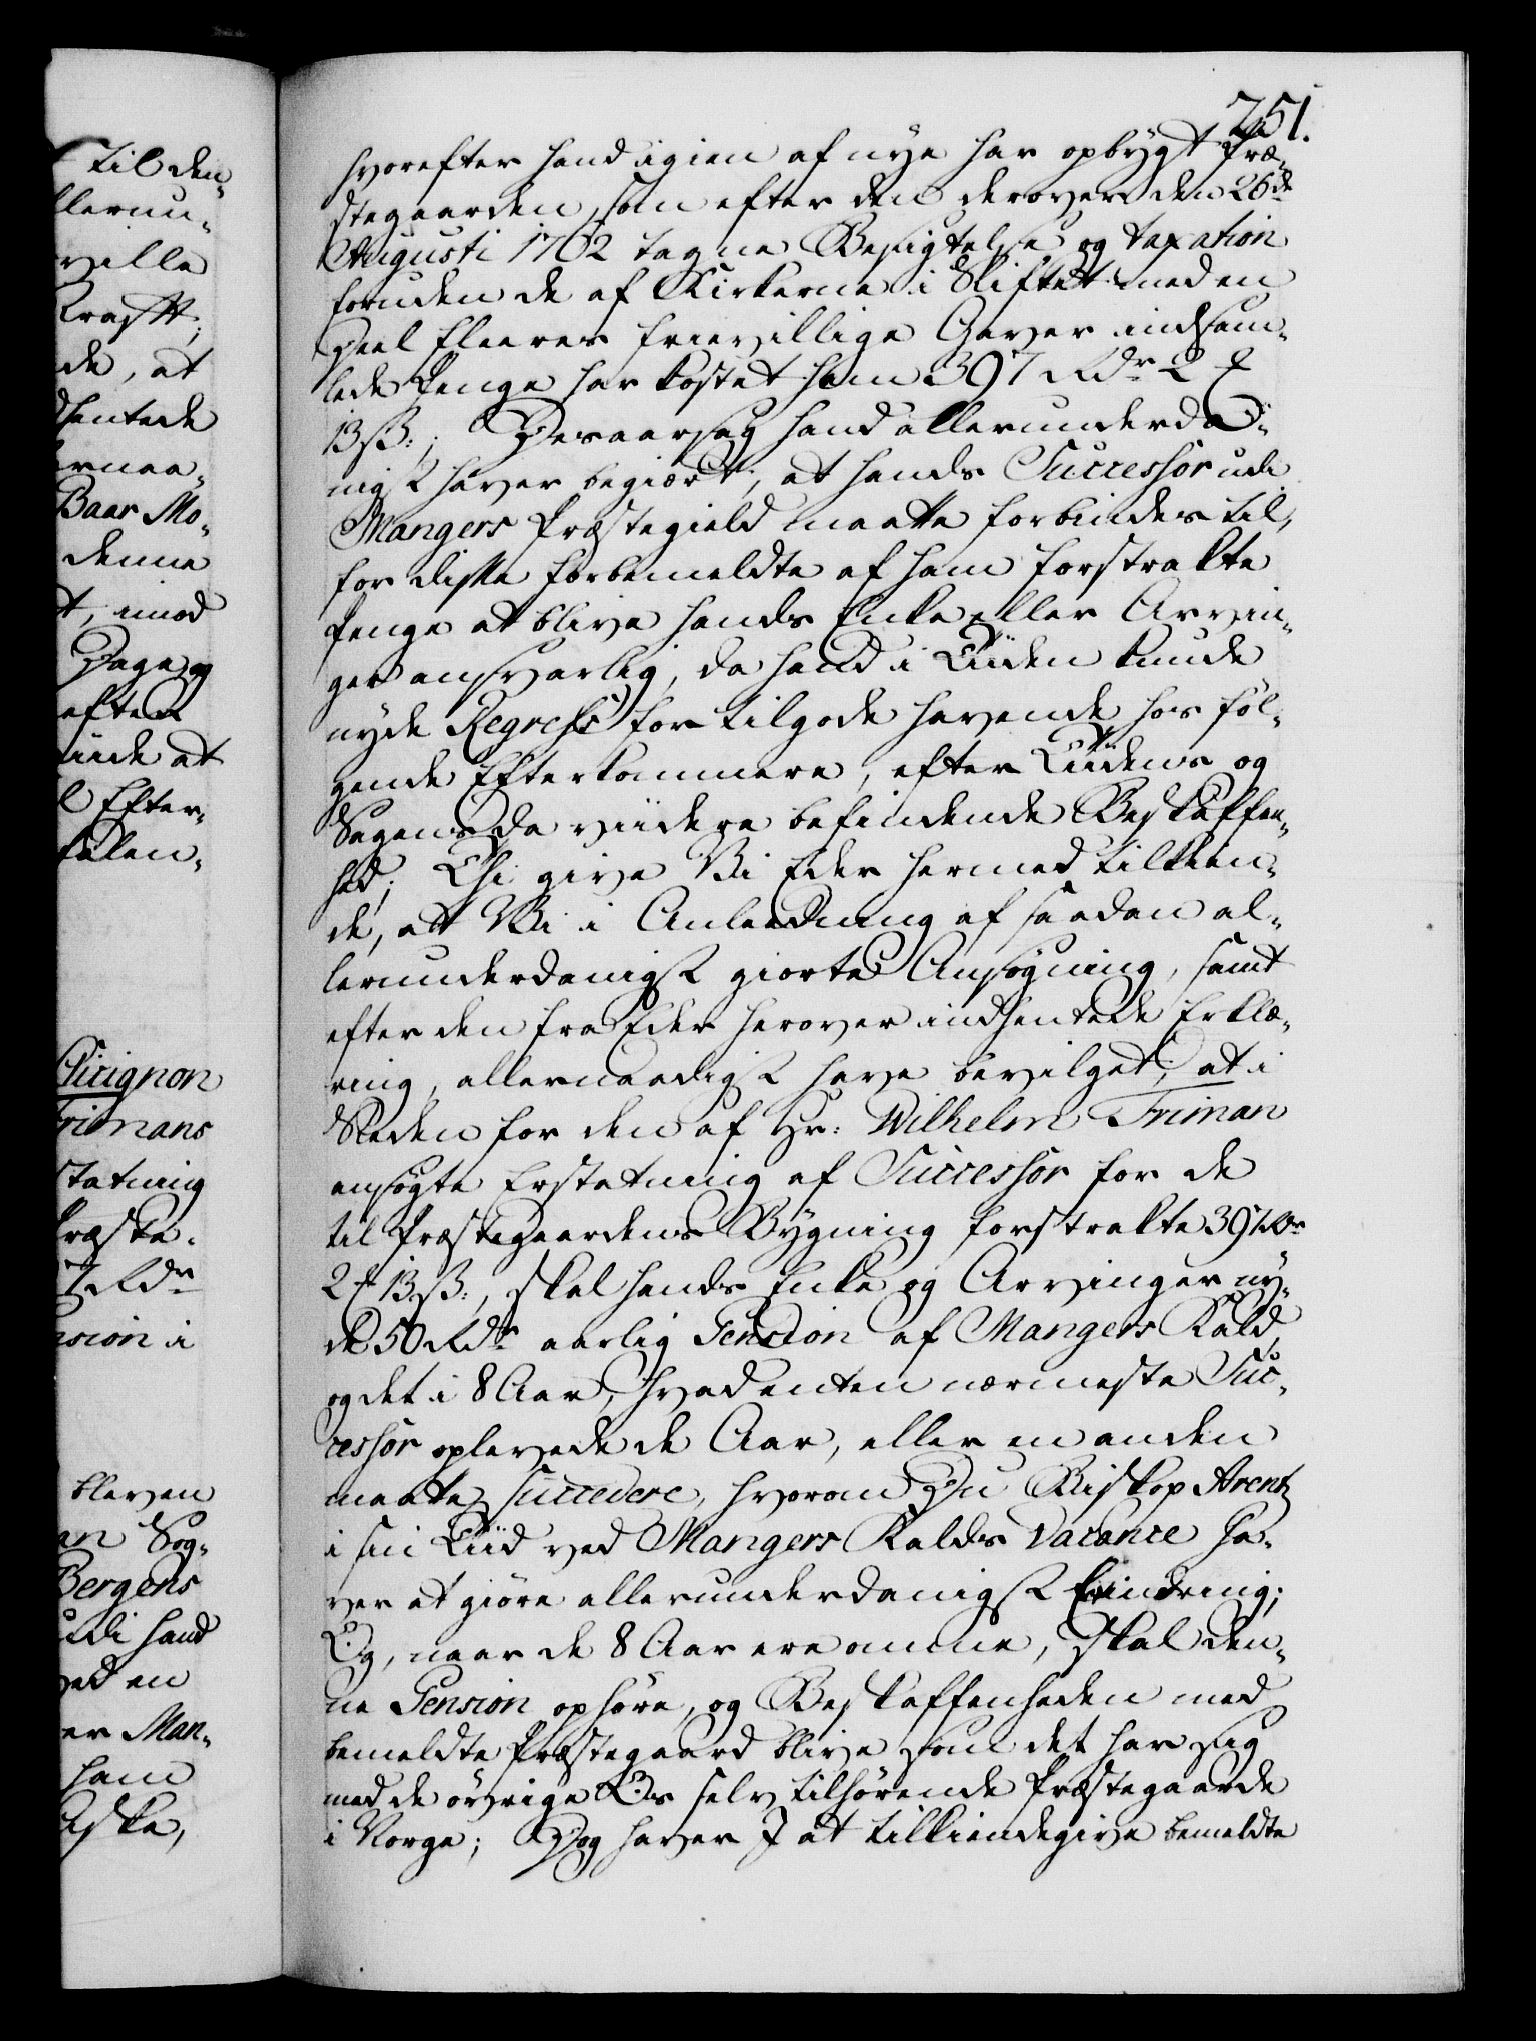 251.
hvorefter hand igien af nye har opbygt Præ-
stegaarden, som efter den derover den 26de
Augusti 1762 tagne Besigtelse og taxation
foruden de af Kirkerne i Stiftet med en
Deel fleeres frievillige Gaver indsam-
lede Penge har kostet ham 397 Rdr 2 
13 ß:; Desaarsag hand allerunderda-
nigst haver begiært, at hands Successor udi
Mangers Præstegield maatte forbindes til,
for disse forbemeldte af ham forstrakte
Penge at blive hands Enke eller Arvin-
ger ansvarlig, da hand i Tiiden kunde
nyde Regress for tilgode havende hos föl-
gende Efterkommere, efter Tiidens og
Sagens da viidere befindende Beskaffen-
hed; Thi give Vi Eder hermed tilkien-
de, at Vi i Anledning af saadan al-
lerunderdanigst giorte Ansøgning, samt
efter den fra Eder herover indhentede Erklæ-
ring, allernaadigst have bevilget, at i
Steden for den af Hr: Wilhelm Friman
ansøgte Erstatning af Successor for de
til Præstegaardens Bygning forstrakte 397 Rdr
2 13 ß:, skal hands Enke og Arvinger ny-
de 50 Rdr aarlig Pension af Mangers Kald,
og det i 8 Aar, hvad enten nærmeste Suc-
cessor oplevede de Aar, eller en anden
maatte succedere, hvorom Du Biskop Arentz
i sin Tiid ved Mangers Kalds Vacance ha-
ver at giøre allerunderdanigst Erindring;
Og, naar de 8 Aar ere omme, skal den-
ne Pension ophöre, og Beskaffenheden med
bemeldte Præstegaard blive som det har sig
med de övrige Os selv tilhörende Præstegaarde
i Norge; Dog haver I at tilkiendegive bemeldte
til den-
llerun-
ville
Krafft;
de, at
dhentede
ernaa-
Baar Mo-
denne
t, imod
Dage og
efter
iide at
l Efter-
falen-
Pirignon
Frimans
statning
Præste-
7 Rdr
nsion i
bleven
an Sog-
Bergens
udi hand
ved en
er Man-
ham
Aske,